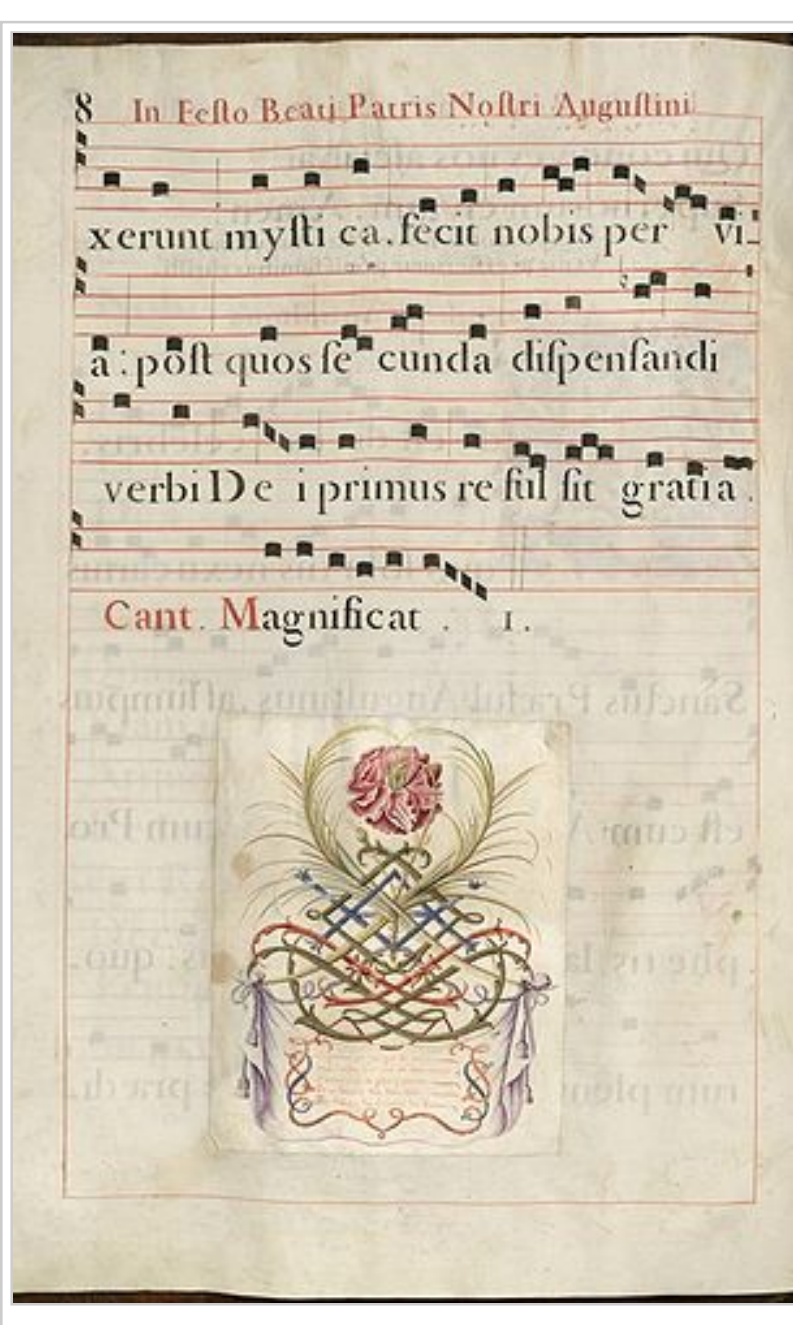 8 In Feſto Beati Patris Noſtri Auguſtini
xerunt myſti ca. fecit nobis per vi_
a : poſt quos ſe cunda diſpenſandi
verbi De i primus re ful ſit gratia .
Cant. Magnificat . 1 .